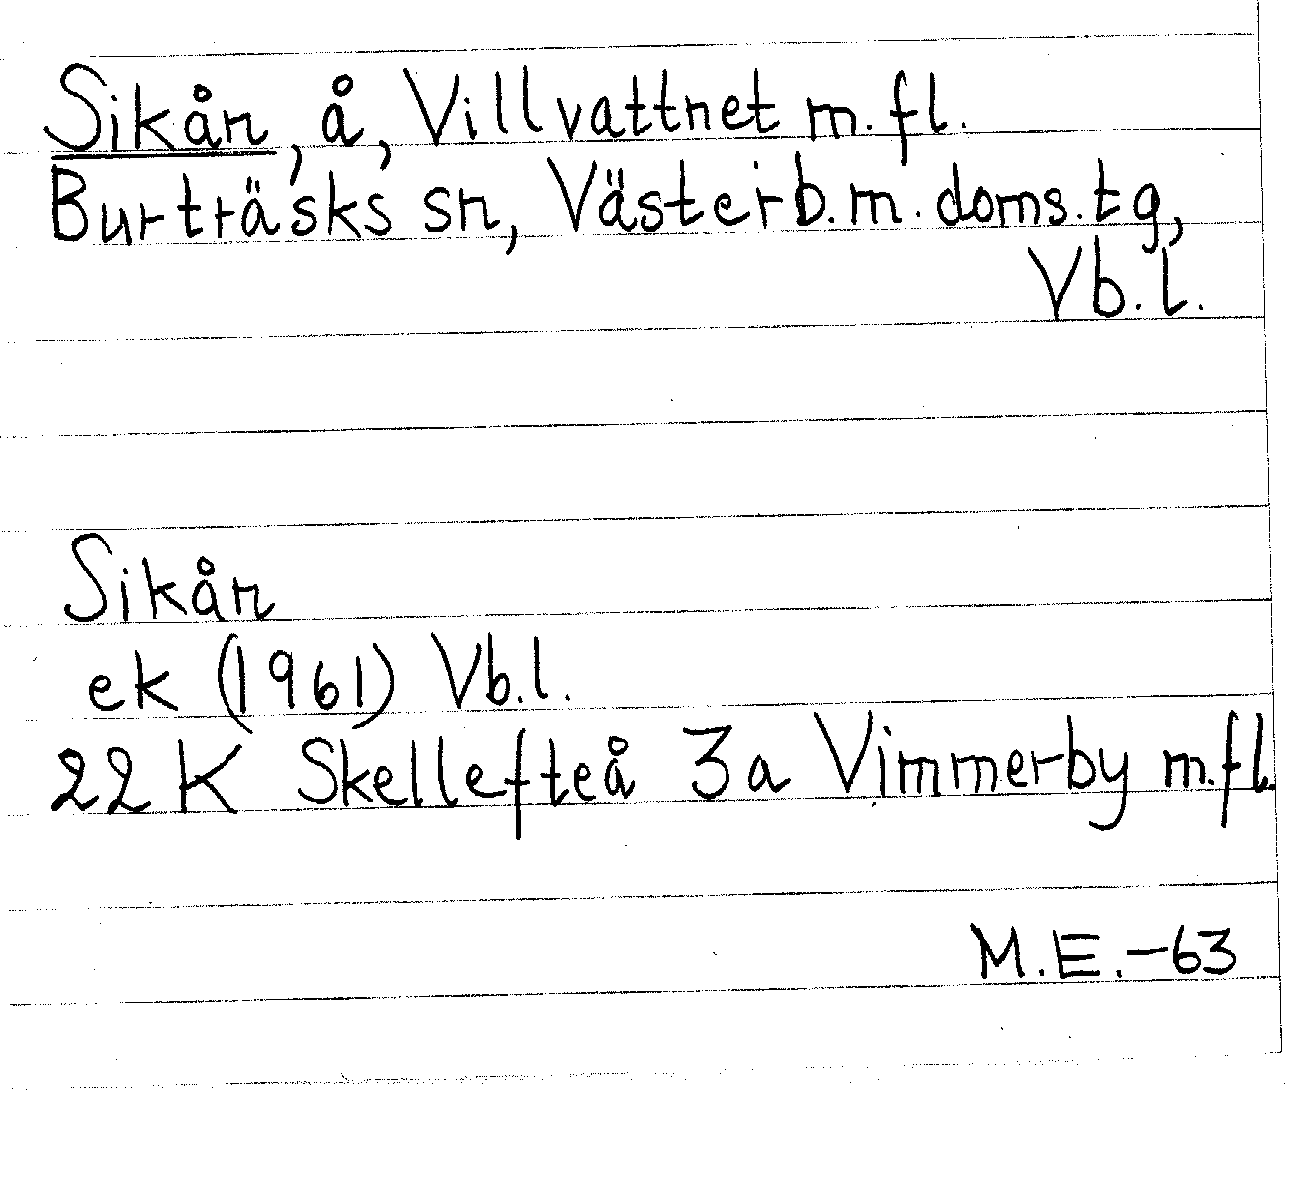 Sikån, å, Villvattnet m.fl.
Burträsks sn, Västerb.m.doms.tg,
Vb.l.
Sikån
ek (1961) Vb.l.
22 K Skellefteå 3a Vimmerby m.fl.
M.E.-63